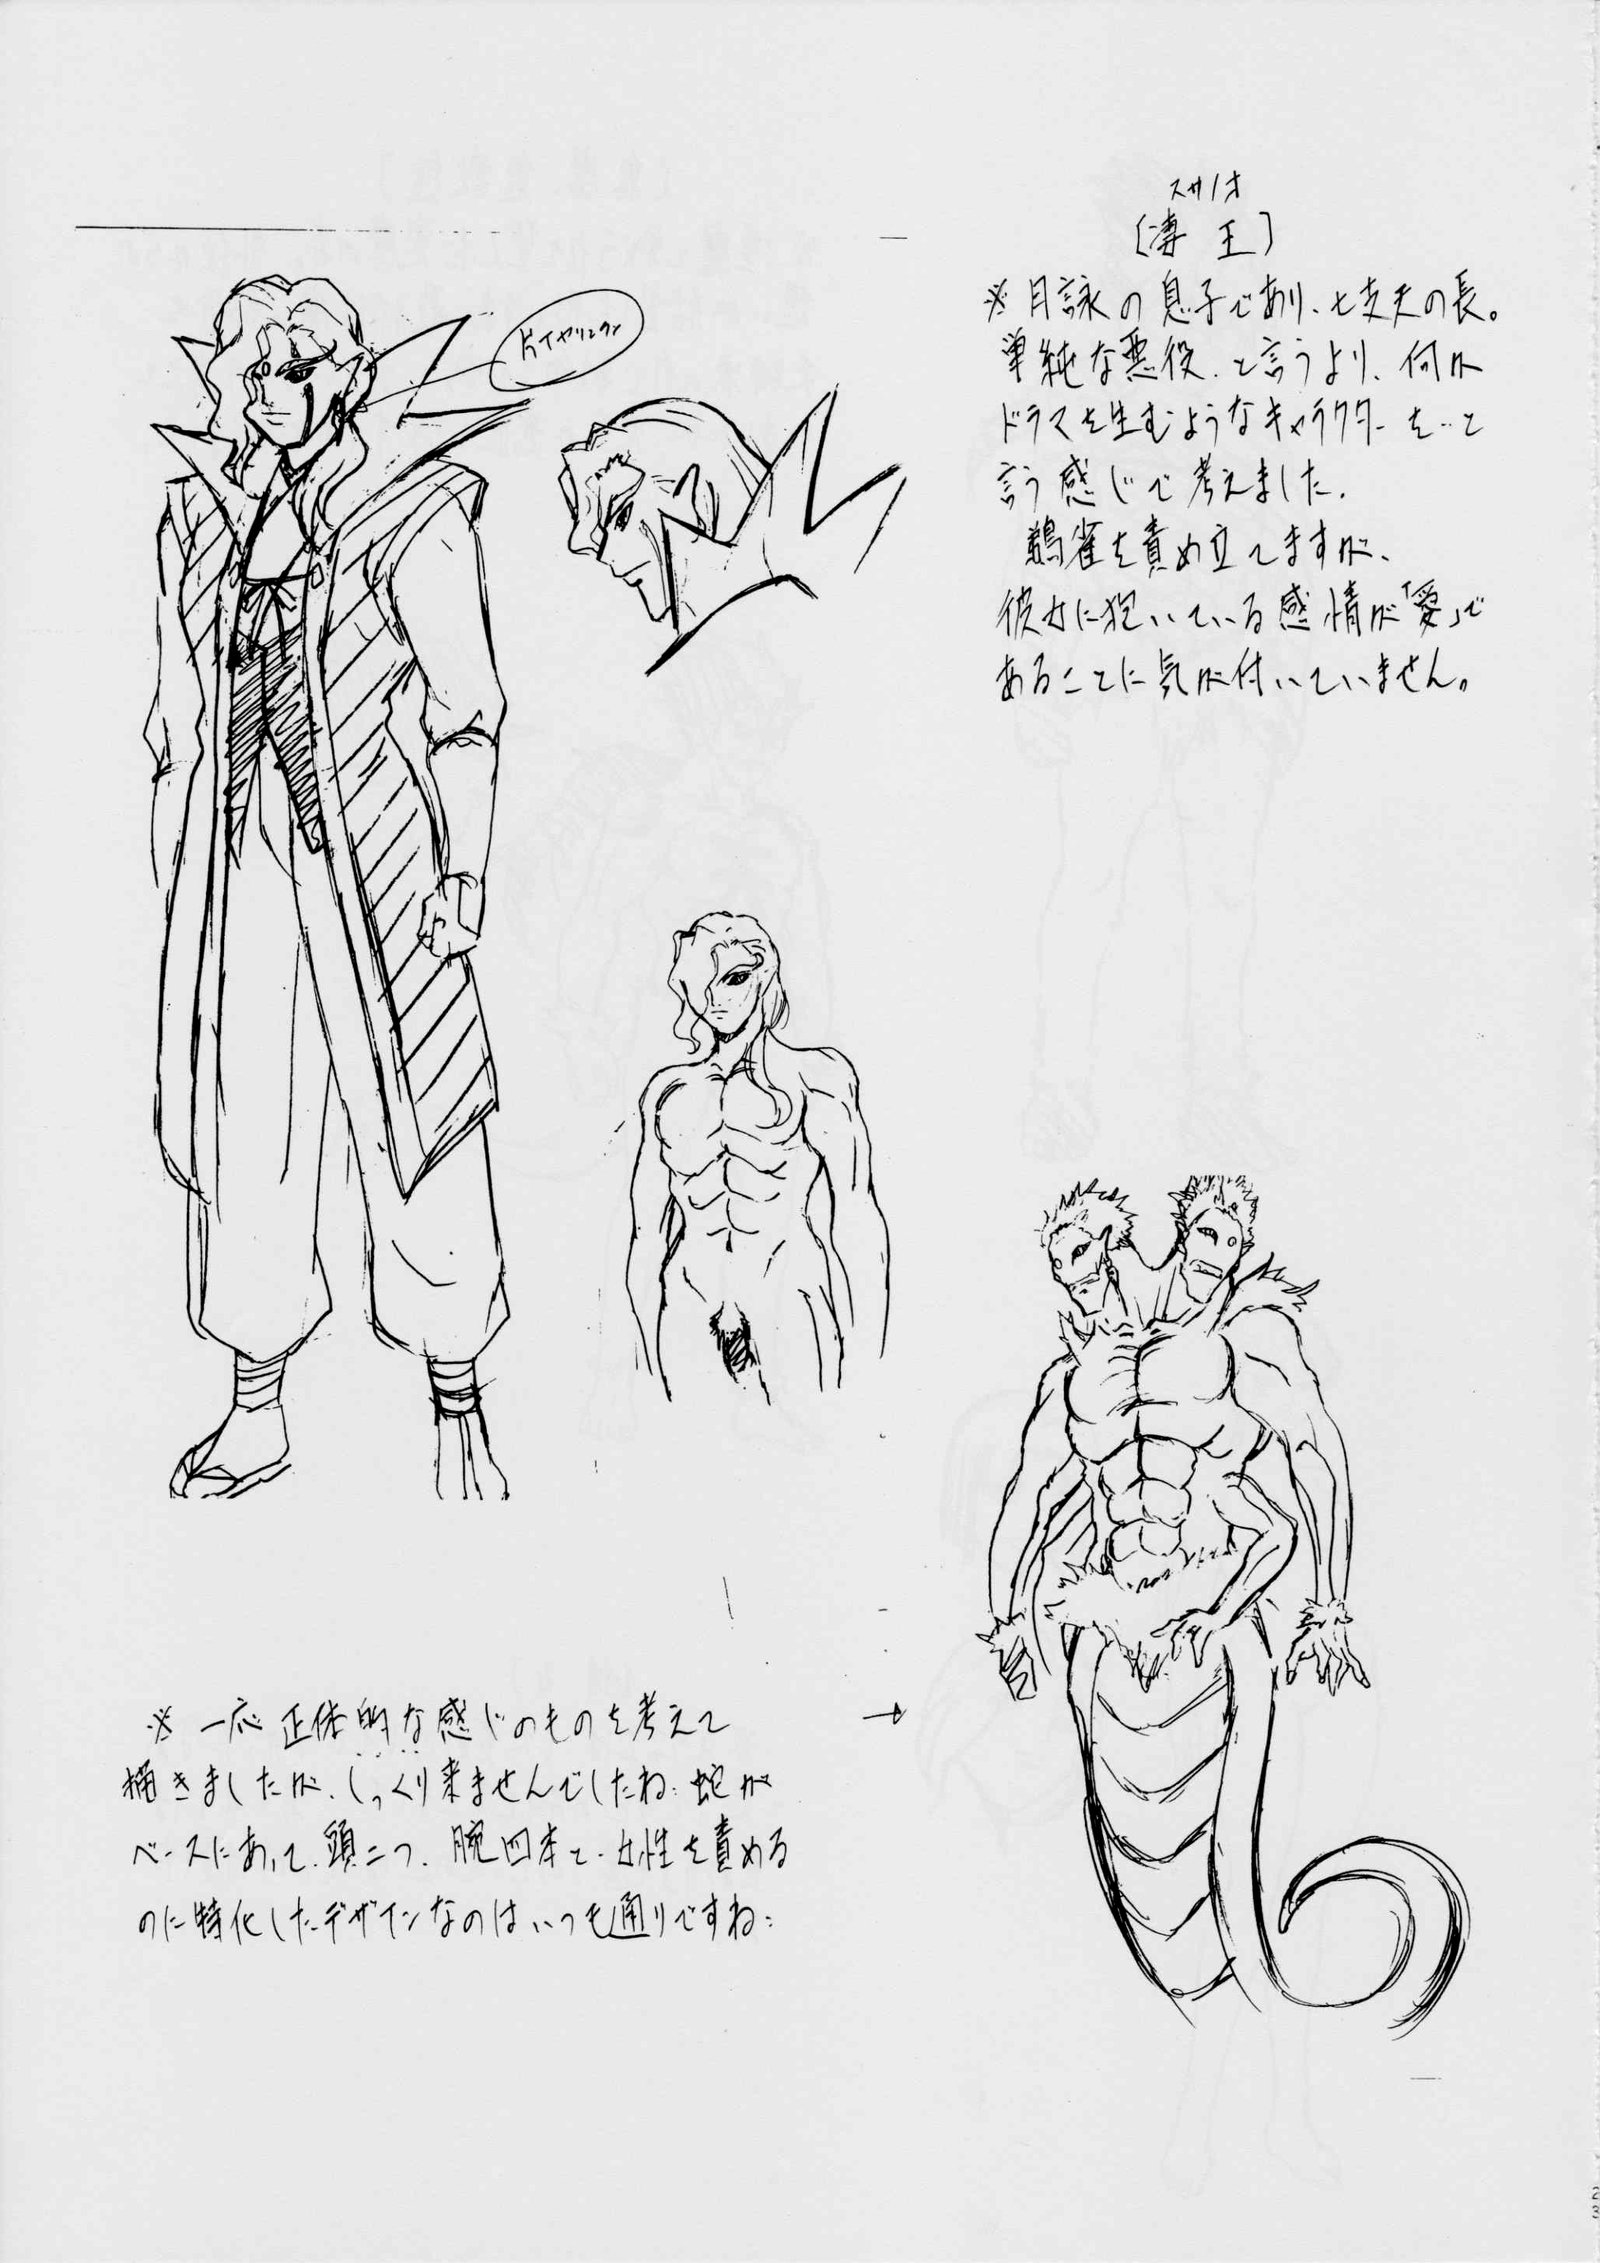 スサノオ
[凄王]
※月詠の息子であり、七支天の長。
単純な悪役、と言うより、何か
ドラマを生むようなキャラクターを…と
言う感じで考えました。
鵺雀を責め立てますが、
彼女に抱いている感情が「愛」で
あることに気が付いていません。
片イヤリング
※一応正体的な感じのものを考えて
描きましたが、しっくり来ませんでしたね…蛇が
ベースにあって、頭二つ、腕四本と、女性を責める
のに特化したデザインなのはいつも通りですね…
→
23